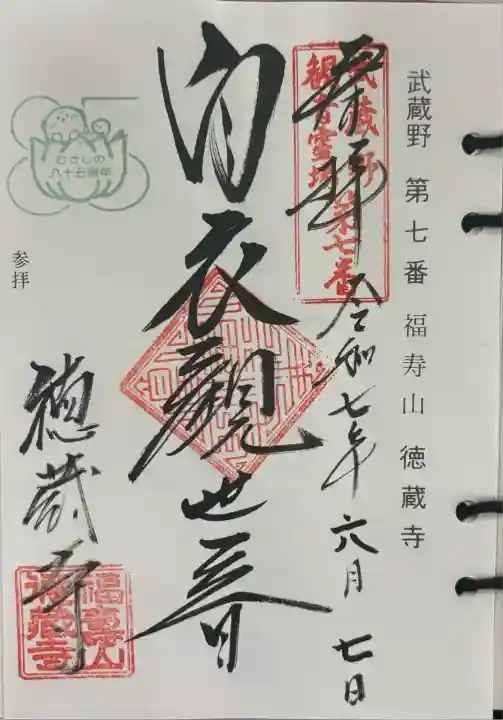 武蔵野 第七番 福寿山 徳蔵寺
奉拝 令和七年六月七日
武蔵野
観音霊場
第七番
白衣観世音
むさしの
八十五周年
参拝
徳蔵寺
福壽山
徳蔵寺